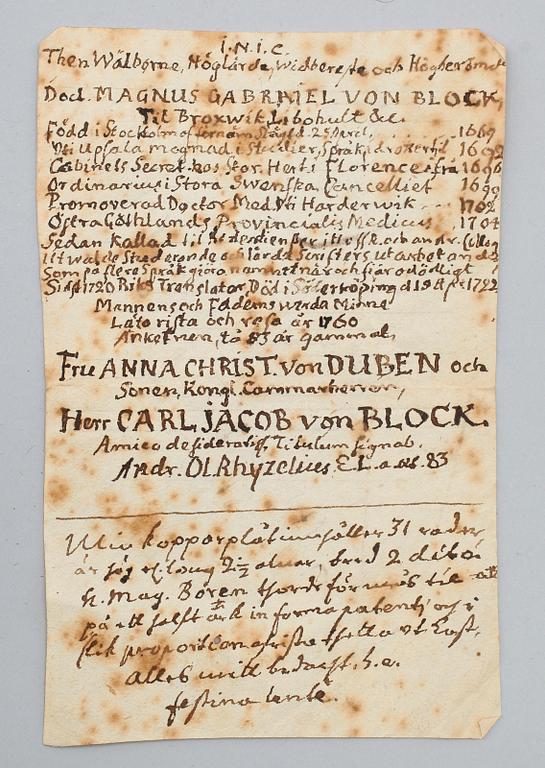 I.N.I.C.
Then Wälborne, Höglärde, widbereste och Högberömde
Doct. MAGNUS GABRIEL VON BLOCK,
Til Broxwik, Libohult &c.
Född i Stockholm af förnäm Slägt d. 25 April, 1669
Uti Upsala Studier, Språk 1692
Cabinets Secret. hos Stor Hert. i Florence ifrå 1696
Ordinarius i Stora Swenska Cancelliet 1699
Promoverad Doctor Med. Uti Harderwik 1702
Östra Göthlands Provincialis Medicus 1704
Sedan kallad til i och andr.
utwalde Studerande och lärda Scrifters utarbetande
Som på flere Språk giöra namnet när och fiär odödligt
Sidst 1720 Riks Translator Död i Söderköping d 19 Apr 1722
Mannens och Faderns werda Minne
Läto rista och resa år 1760
Ankefruen, tå 83 år gammal,
Fru ANNA CHRIST. von DUBEN och
Sonen, Kongl. Cammarherren,
Herr CARL JACOB von BLOCK.
Amico desideratiss. Titulum signat.
Andr. Ol. Rhyzelius E. L. a. æt. 83
kopparplåten håller 31 rader
är lång 2 1/2 alnar, bred 2 dito
H. Mag. Boren torde förmås til att
på ett halft ark in forma patenti och i
slik proportion rista thetta ut
alles mitt
festina lente.